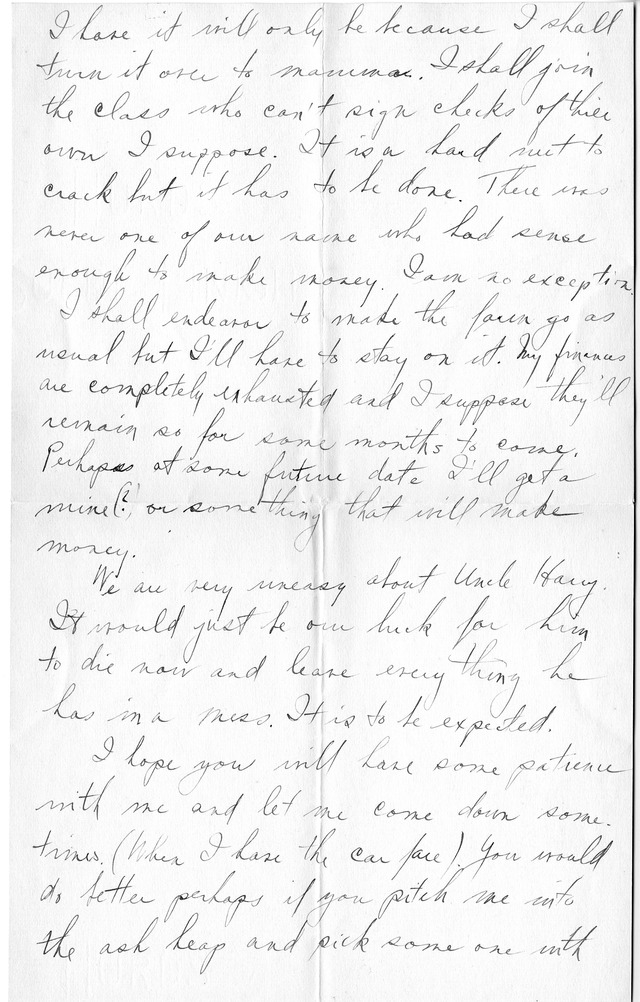 I have it will only be because I shall
turn it over to mamma. I shall join
the class who can't sign checks of thier
own I suppose. It is a hard nut to
crack but it has to be done. There was
never one of our name who had sense
enough to make money. I am no exception.
I shall endeavor to make the farm go as
usual but I'll have to stay on it. My finances
are completely exhausted and I suppose they'll
remain so for some months to come.
Perhaps at some future date I'll get a
mine(?) or something that will make
money.
We are very uneasy about Uncle Harry.
It would just be our luck for him
to die now and leave everything he
has in a mess. It is to be expected.
I hope you will have some patience
with me and let me come down some-
times. (When I have the car fare). You would
do better perhaps if you pitch me into
the ash heap and pick some one with